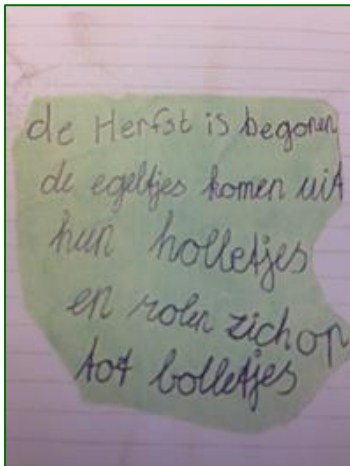 de Herfst is begonen
de egeltjes komen uit
hun holletjes
en rolen zich op
tot bolletjes